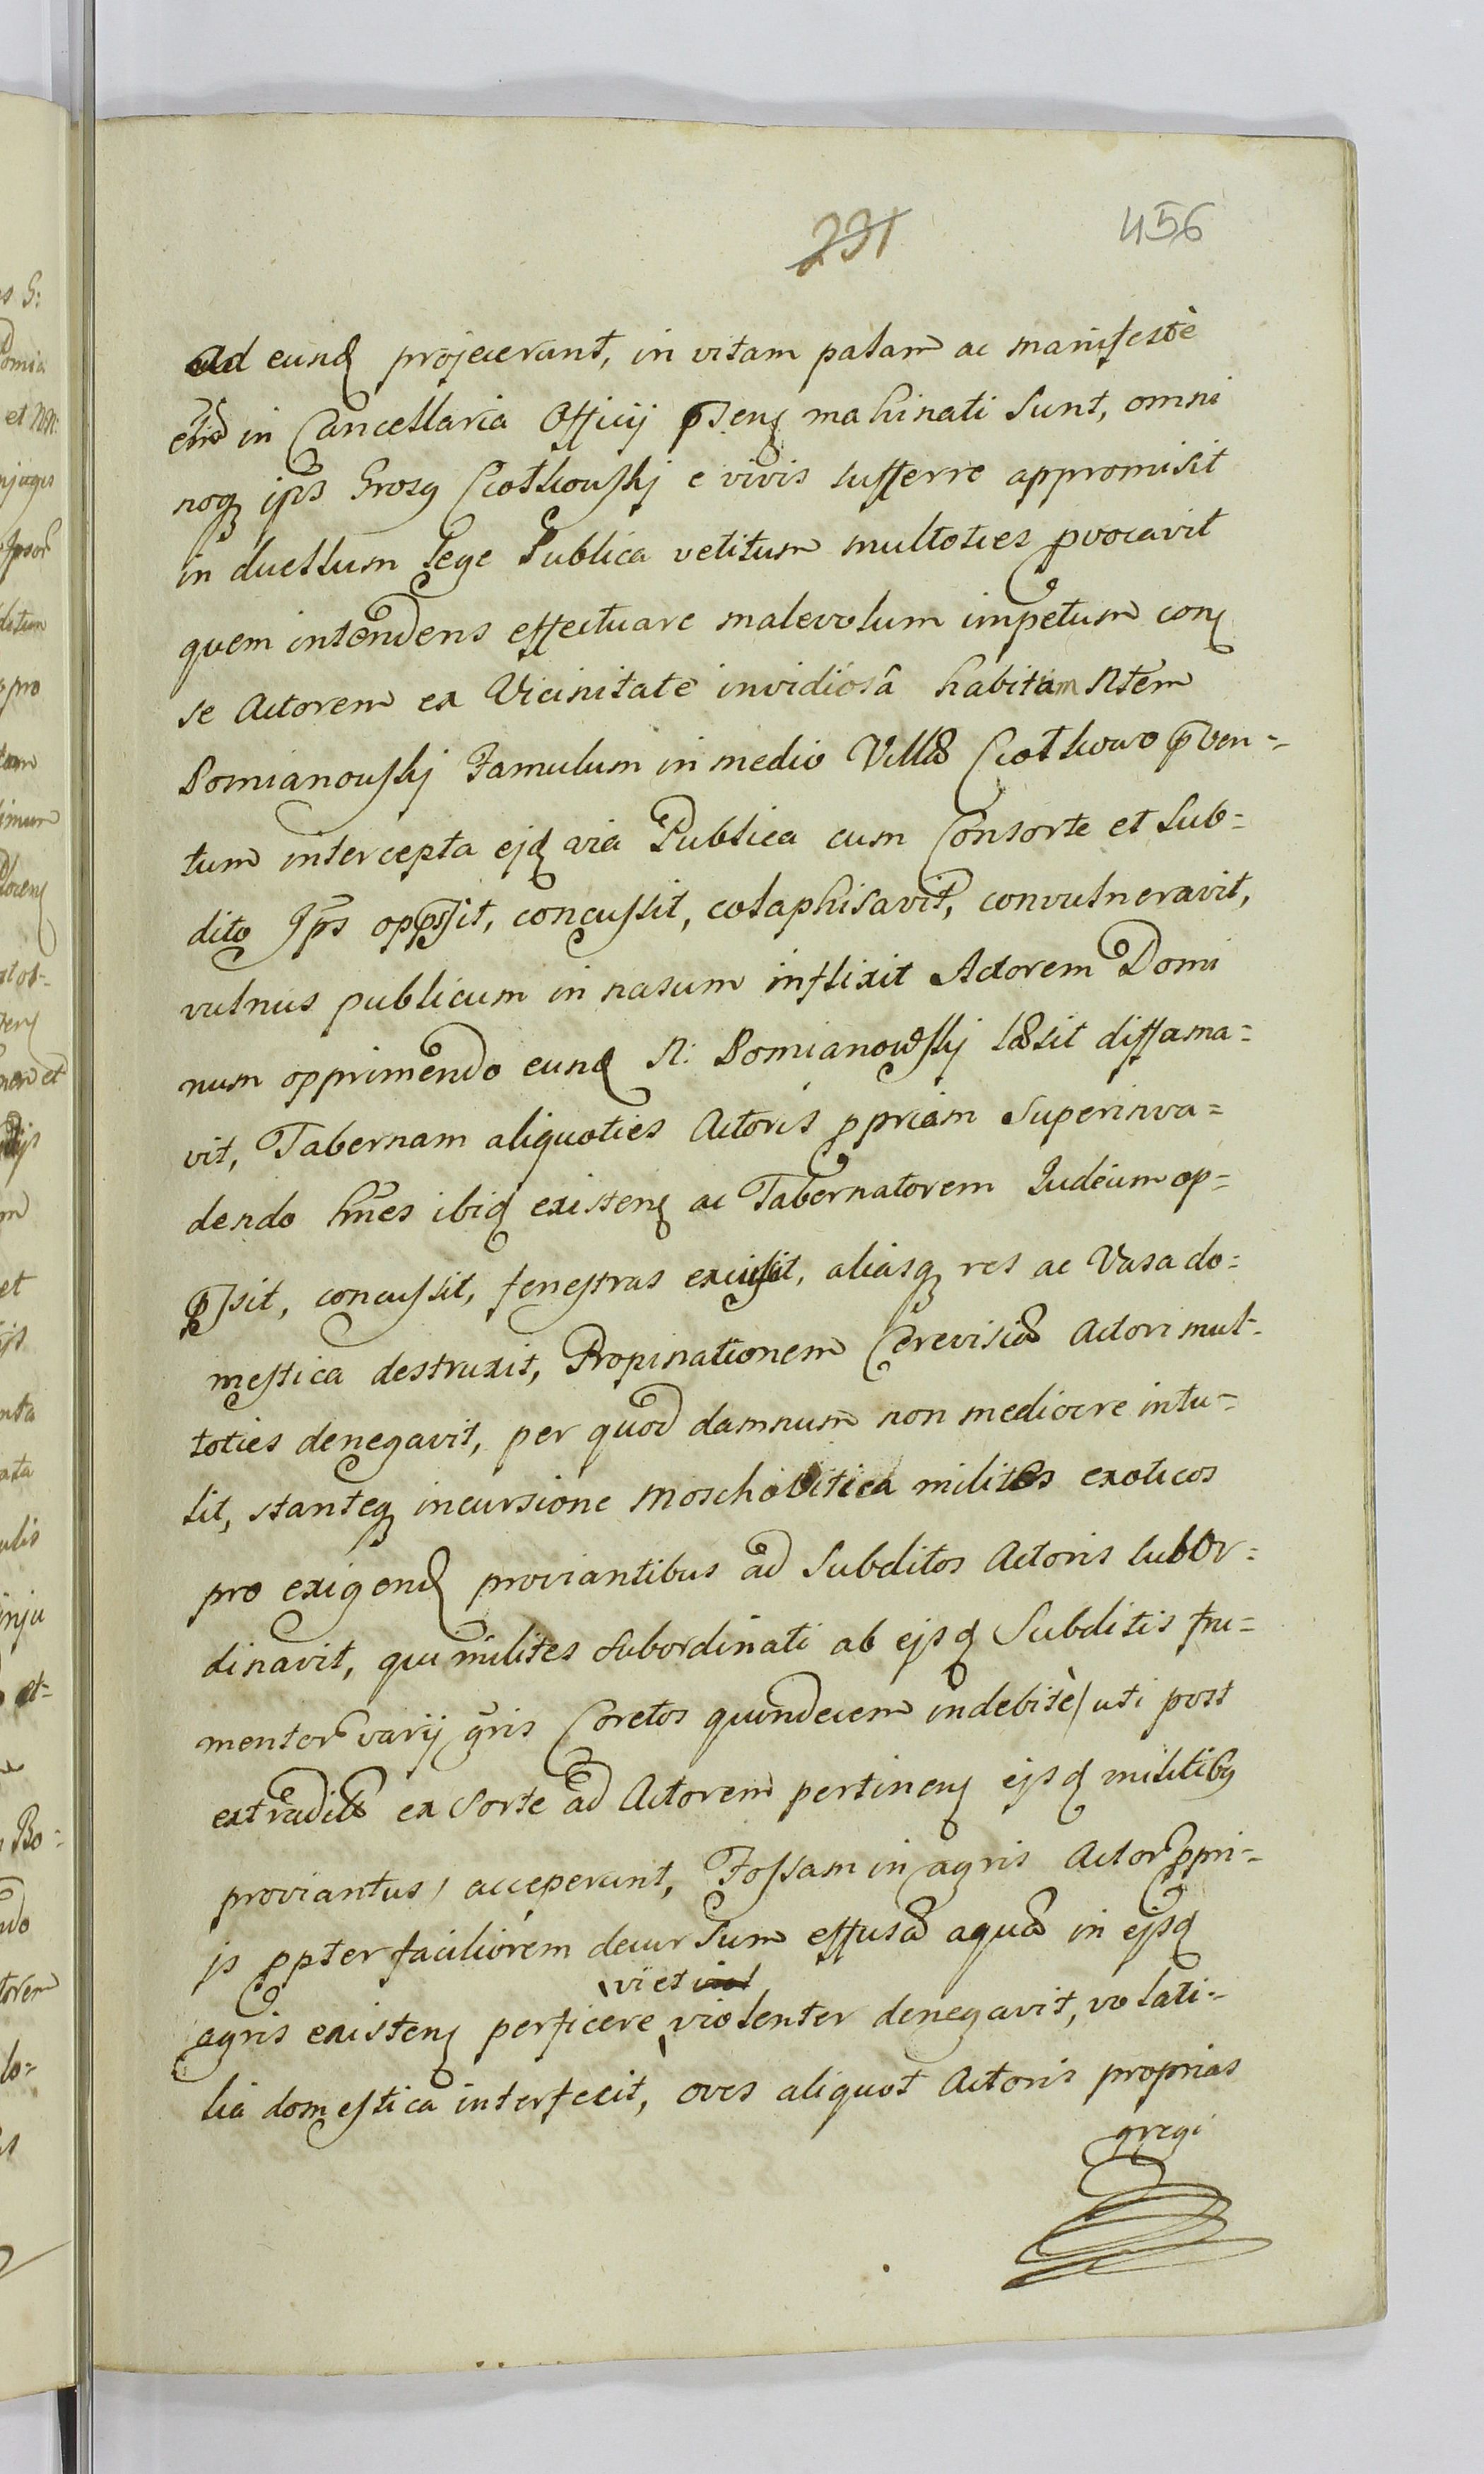 291 456
Ad eund projecerunt, in vitam palam ac manifestè
etiã in Cancellaria Officij pñsenṣ mahinati sunt, omni
noq ips Grosq Ciotkouskj e vivis sufferre appromisit
in duellum Lege Publica vetitum multoties pvocavit
quem intendens effectuare malevolum impetum con
se Actorem ex Vicinitate invidiosâ habitam Ntem
Pomianouskj Famulum in medio Villæ Ciotkowo pven=
tum intercepta ejd via Publica cum Consorte et Sub=
dito Jps oppssit, concussit, colaphisavit, convulneravit,
vulnus publicum in nasum inflixit Actorem Domi
num opprimendo eund N: Pomianowskj læsit diffama=
vit, Tabernam aliquoties Actoris ppriam Superinva=
dendo hnes ibid existen ac Tabernatorem Judeum op=
pssit, concussit, fenestras excussit, aliasq res ac Vasa do=
mestica destruxit, Propinationem Cerevisiæ Actori mul=
toties denegavit, per quod damnum non mediocre intu=
lit, stanteq incursione Moschovitica milites exoticos
pro exigend proviantibus ad Subditos Actoris subor=
dinavit, qui milites subordinati ab ejsd Subditis fru=
mentor varij gris Coretos quindecem indebitè / uti post
extradit ex Sorte ad Actorem pertinen ejsd militibq
proviantus / acceperunt, Fossam in agris Actor ppri=
js ppter faciliorem decursum effusæ aquæ in ejsd
vi et
agris existen perficere violenter denegavit, volati=
lia domestica interfecit, oves aliquot Actoris proprias
gregi